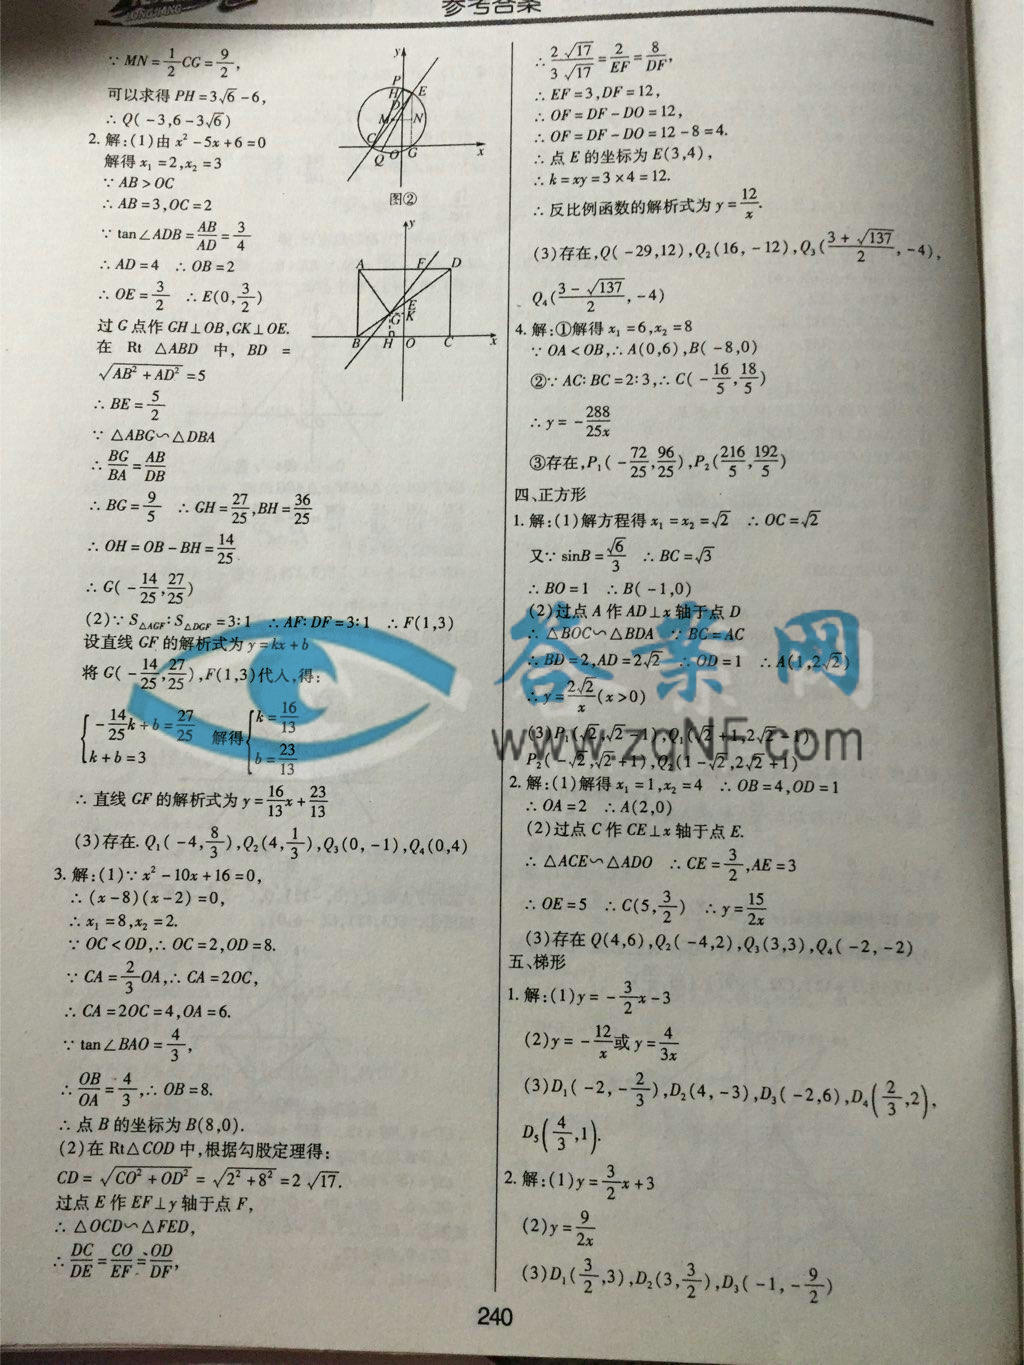 LONGJIANG
参考答案
∵ MN=1/2CG=9/2,
可以求得 PH=3√6-6,
∴ Q(-3,6-3√6)
2. 解:(1)由 x²-5x+6=0
解得 x₁=2,x₂=3
∵ AB>OC
∴ AB=3,OC=2
∵ tan∠ADB=AB/AD=3/4
∴ AD=4 ∴ OB=2
∴ OE=3/2 ∴ E(0,3/2)
过 G 点作 GH⊥OB,GK⊥OE.
在 Rt △ABD 中, BD =
√(AB²+AD²)=5
∴ BE=5/2
∵ △ABG∽△DBA
∴ BG/BA=AB/DB
∴ BG=9/5 ∴ GH=27/25,BH=36/25
∴ OH=OB-BH=14/25.
∴ G(-14/25,27/25)
(2)∵ S△AGF:S△DGF=3:1 ∴ AF:DF=3:1 ∴ F(1,3)
设直线 GF 的解析式为 y=kx+b
将 G(-14/25,27/25),F(1,3)代入,得:
{-14/25k+b=27/25 解得{k=16/13
k+b=3 b=23/13
∴ 直线 GF 的解析式为 y=16/13x+23/13
(3)存在. Q₁(-4,8/3),Q₂(4,1/3),Q₃(0,-1),Q₄(0,4)
3. 解:(1)∵ x²-10x+16=0,
∴ (x-8)(x-2)=0,
∴ x₁=8,x₂=2.
∵ OC<OD,∴ OC=2,OD=8.
∵ CA=2/3OA,∴ CA=2OC,
∴ CA=2OC=4,OA=6.
∵ tan∠BAO=4/3,
∴ OB/OA=4/3,∴ OB=8.
∴ 点 B 的坐标为 B(8,0).
(2)在 Rt△COD 中,根据勾股定理得:
CD=√(CO²+OD²)=√(2²+8²)=2√17.
过点 E 作 EF⊥y 轴于点 F,
∴ △OCD∽△FED,
∴ DC/DE=CO/EF=OD/DF,
y
P
H E
D
M N
C
Q O G x
图②
y
A F D
E
G K
B H O C x
∴ 2√17/3√17=2/EF=8/DF,
∴ EF=3,DF=12,
∴ OF=DF-DO=12,
∴ OF=DF-DO=12-8=4.
∴ 点 E 的坐标为 E(3,4),
∴ k=xy=3×4=12.
∴ 反比例函数的解析式为 y=12/x.
(3)存在,Q(-29,12),Q₂(16,-12),Q₃((3+√137)/2,-4),
Q₄((3-√137)/2,-4)
4. 解:①解得 x₁=6,x₂=8
∵ OA<OB,∴ A(0,6),B(-8,0)
②∵ AC:BC=2:3,∴ C(-16/5,18/5)
∴ y=-288/25x
③存在,P₁(-72/25,96/25),P₂(216/5,192/5)
四、正方形
1. 解:(1)解方程得 x₁=x₂=√2 ∴ OC=√2
又∵ sinB=√6/3 ∴ BC=√3
∴ BO=1 ∴ B(-1,0)
(2)过点 A 作 AD⊥x 轴于点 D
∴ △BOC∽△BDA ∵ BC=AC
∴ BD=2,AD=2√2 ∴ OD=1 ∴ A(1,2√2)
∴ y=2√2/x(x>0)
(3)P₁(√2,√2-1),Q₁(√2+1,2√2-1)
P₂(-√2,√2+1),Q₂(1-√2,2√2+1)
2. 解:(1)解得 x₁=1,x₂=4 ∴ OB=4,OD=1
∴ OA=2 ∴ A(2,0)
(2)过点 C 作 CE⊥x 轴于点 E.
∴ △ACE∽△ADO ∴ CE=3/2,AE=3
∴ OE=5 ∴ C(5,3/2) ∴ y=15/2x
(3)存在 Q(4,6),Q₂(-4,2),Q₃(3,3),Q₄(-2,-2)
五、梯形
1. 解:(1)y=-3/2x-3
(2)y=-12/x或 y=4/3x
(3)D₁(-2,-2/3),D₂(4,-3),D₃(-2,6),D₄(2/3,2),
D₅(4/3,1).
2. 解:(1)y=3/2x+3
(2)y=9/2x
(3)D₁(3/2,3),D₂(3,3/2),D₃(-1,-9/2)
答案网
www.zqNF.com
240